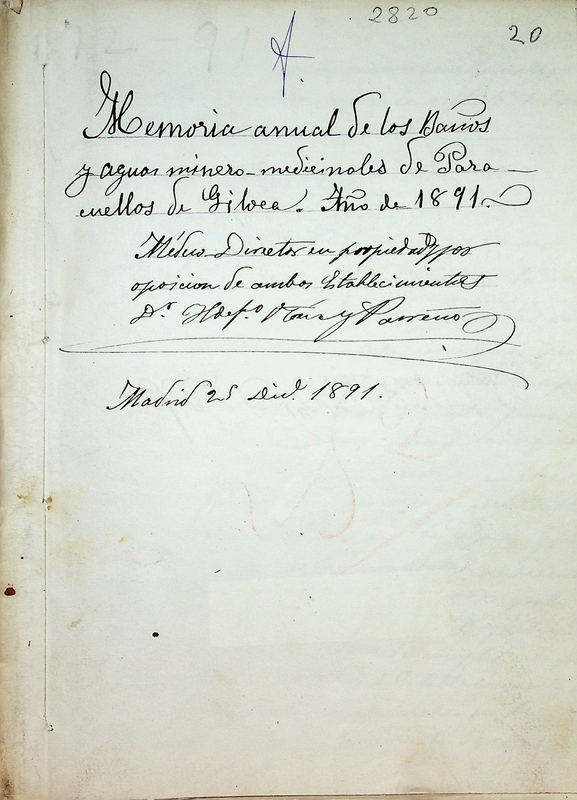 2820
20
A.
Memoria anual de los Baños
y aguas minero-medicinales de Para-
cuellos de Giloca. Año de 1891.
Médico-Director en propiedad y por
oposicion de ambos Establecimientos
Dr. Ildefo. y Parreño
Madrid 25 Dice. 1891.